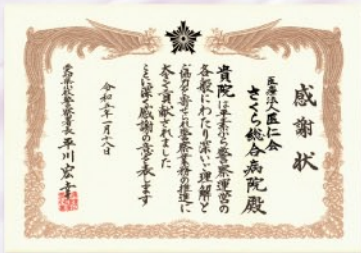 感謝状
医療法人医仁会
さくら総合病院殿
貴院は平素から警察運営の
各般にわたり深いご理解と
ご協力を寄せられ警察業務の推進に
大きく貢献されました
ここに深く感謝の意を表します
令和五年一月十八日
愛知県江南警察署長 平川宏幸